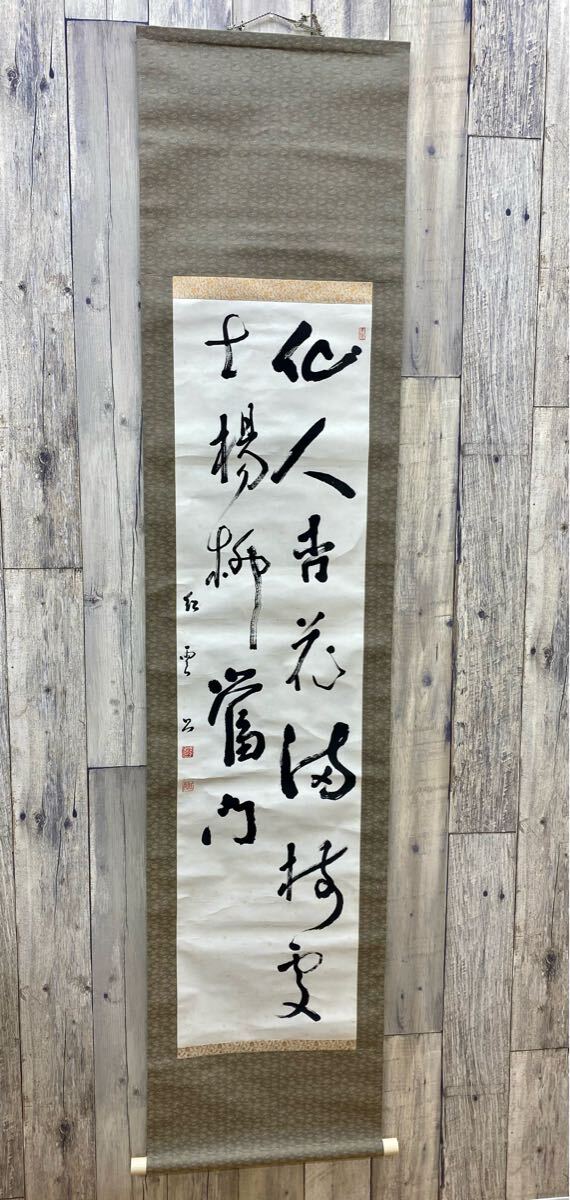 仙人杏花滿樹處
士楊柳當門
紅雲